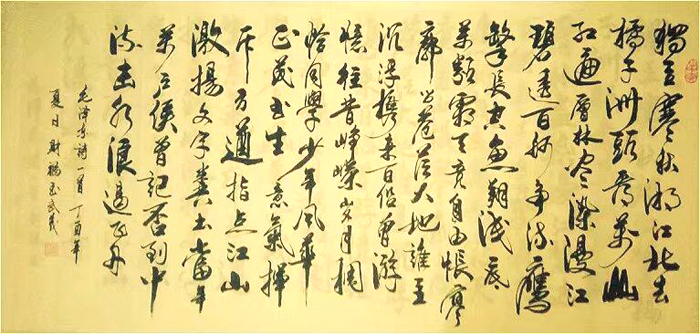 獨立寒秋湘江北去
橘子洲頭看萬山
红遍層林尽染漫江
碧透百舸争流鷹
擊長空魚翔浅底
萬類霜天竞自由悵寥
廓问蒼茫大地誰主
沉浮携来百侣曾游
憶往昔峥嶸岁月稠
恰同學少年风華
正茂书生意氣揮
斥方遒指点江山
激揚文字糞土當年
萬户侯曾記否到中
流击水浪遏飞舟
毛泽东詩一首丁酉年
夏日